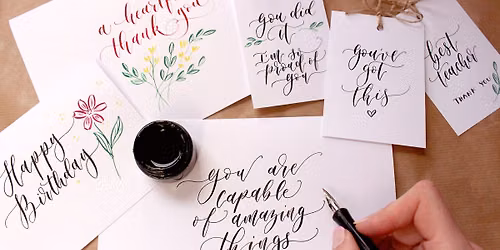 a heartfelt
thank you
you did
it
I'm so
proud of
you
you've
got
this
best
teacher
THANK YOU
Happy
Birthday
you are
capable
of amazing
things